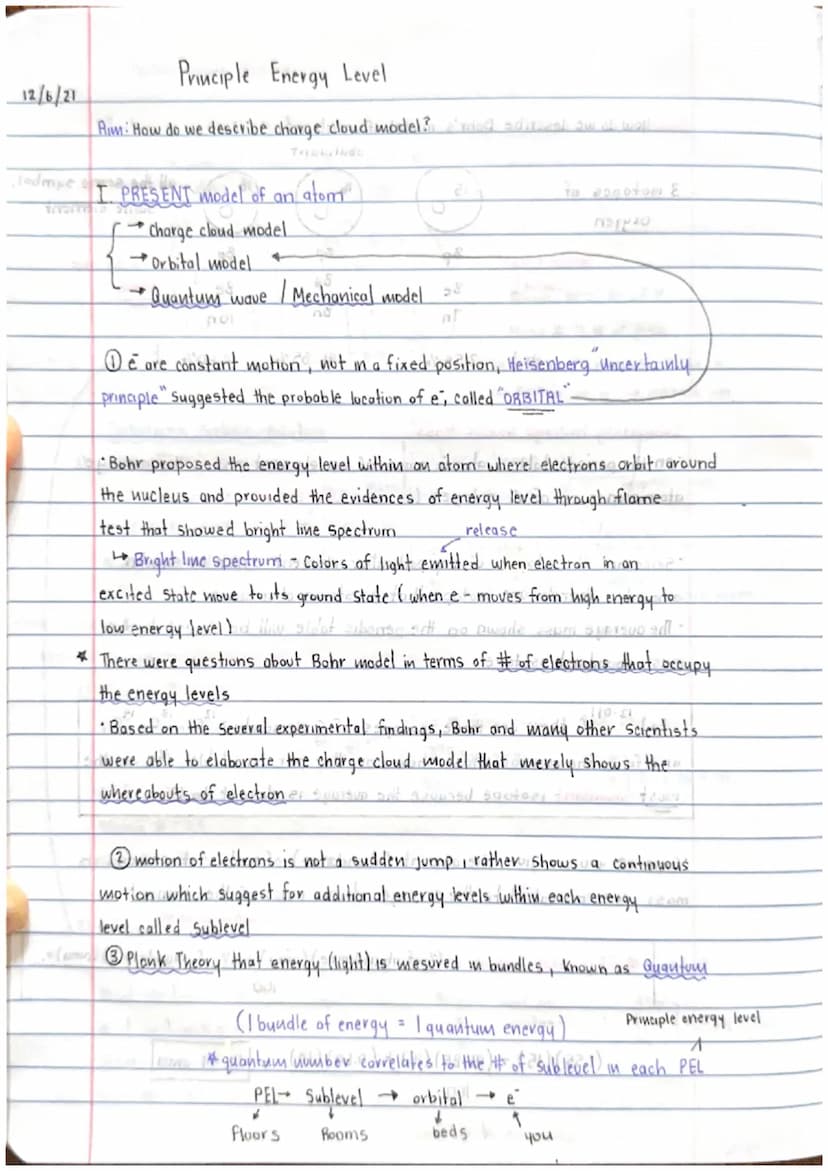 Principle Energy Level
12/6/21
Aim: How do we describe charge cloud model?
I. PRESENT model of an atom
→ charge cloud model
→ Orbital model
→ Quantum wave / Mechanical model
① e⁻ are constant motion, not in a fixed position, Heisenberg "Uncertainly
principle" suggested the probable location of e⁻, called "ORBITAL"
• Bohr proposed the energy level within an atom where electrons orbit around
the nucleus and provided the evidences of energy level through flame
test that showed bright line spectrum
release
↳ Bright line spectrum - Colors of light emitted when electron in an
excited state move to its ground state (when e - moves from high energy to
low energy level)
* There were questions about Bohr model in terms of # of electrons that occupy
the energy levels
• Based on the several experimental findings, Bohr and many other Scientists
were able to elaborate the charge cloud model that merely shows the
whereabouts of electron
② motion of electrons is not a sudden jump, rather shows a continuous
motion which suggest for additional energy levels within each energy
level called Sublevel
③ Plank Theory that energy (light) is mesured in bundles, known as Quantum
(1 bundle of energy = 1 quantum energy)
Principle energy level
* quantum number correlates to the # of sublevel in each PEL
PEL → Sublevel → orbital → e⁻
floors Rooms beds you